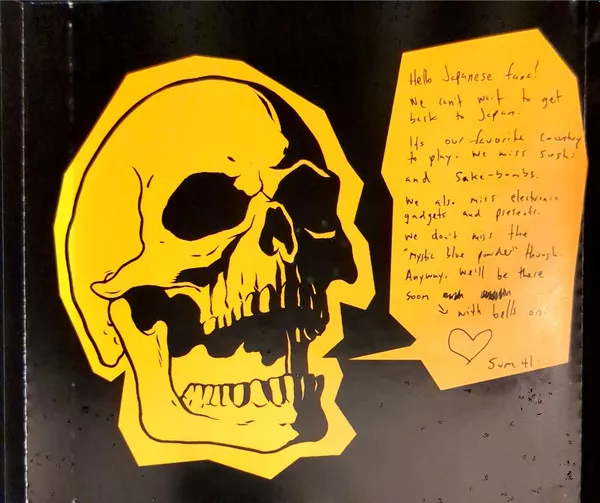 Hello Japanese fans!
We can't wait to get
back to Japan.
It's our favorite country
to play. We miss sushi
and Sake-bombs.
We also miss electronic
gadgets and presents.
We don't miss the
"mystic blue powder" though.
Anyway, we'll be there
soon
↳ with bells on.
♡
Sum 41